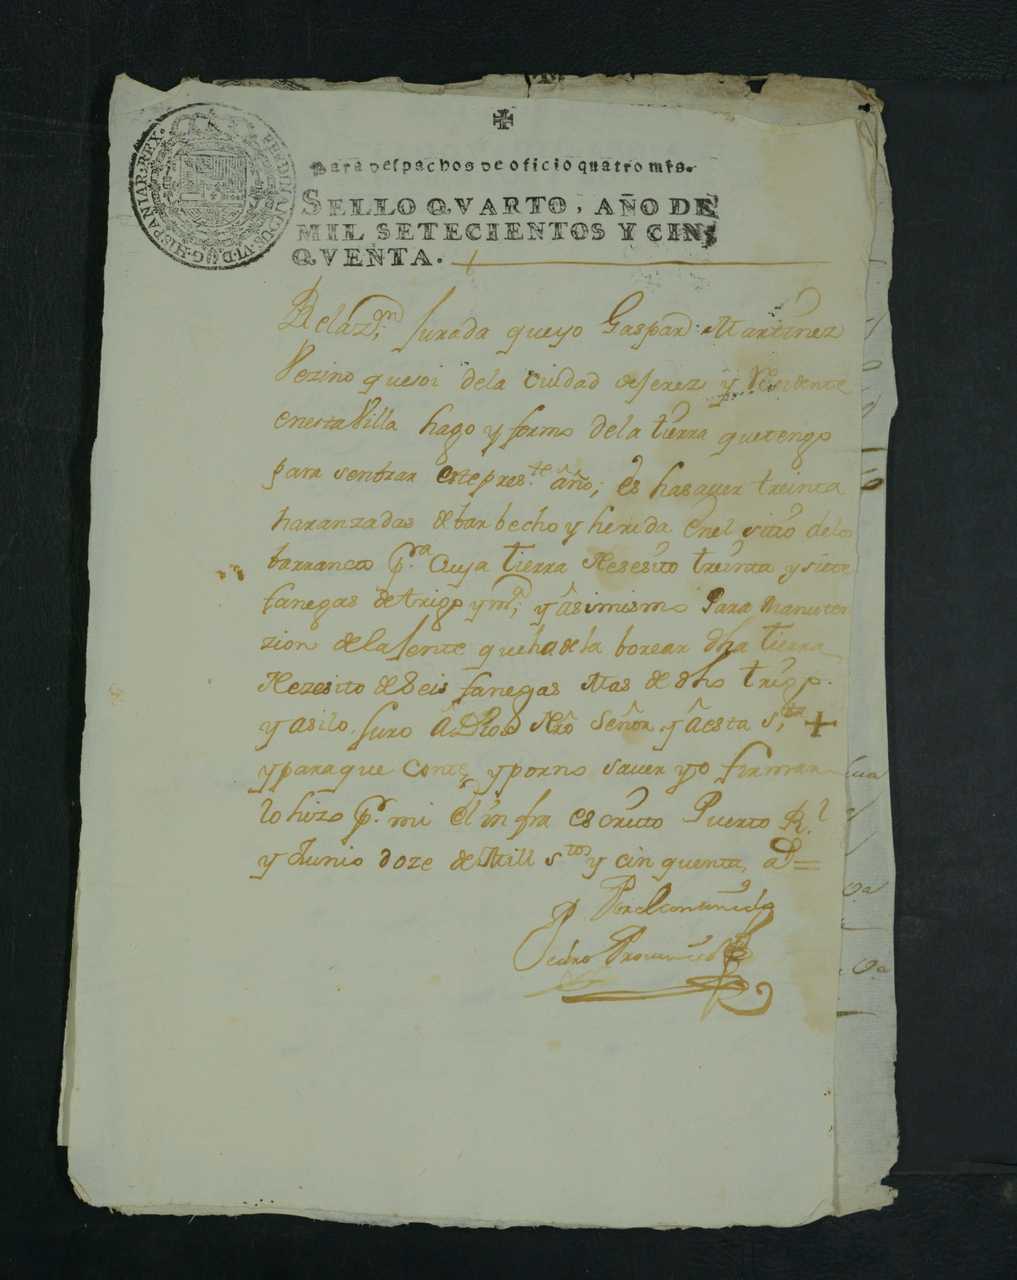 FERDINANDUS•VI•D•G•HISPANIAR•REX•
Para despachos de oficio quatro mrs.
SELLO QVARTO, AÑO DE
MIL SETECIENTOS Y CIN
QVENTA.
Relazon Jurada que yo Gaspar Martinez
Vezino que soi de la Ciudad de Jerez y Residente
en esta Villa hago y formo de la tierra que tengo
para senbrar este preste año; es hasaver treinta
haranzadas de barbecho y herida en el sitio de los
barranco pra Cuya tierra Nesesito treinta y siete
fanegas de trigo y md; y asimismo Para Manuten
zion de la Jente que ha de la borear dha tierra
Nezesito de Seis fanegas Mas de dho trigo.
y asilo Juro a Dios Nro Señor y a esta Sta +
y para que Conste y por no saver yo firmar
lo hizo pr mi el infra escrito Puerto Rl
y Junio doze de Mill Stos y cinquenta as =
Por el contenido
Pedro